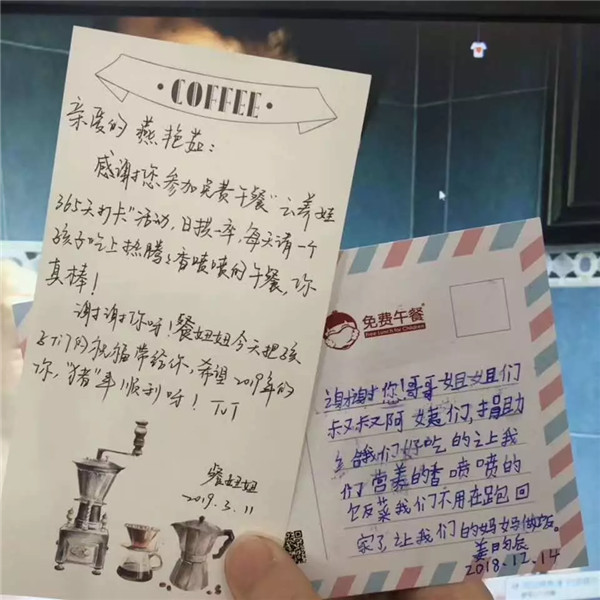 COFFEE
亲爱的 燕艳茹:
感谢您参加免费午餐“云养娃
365天打卡”活动,日捐一杯,每天请一个
孩子吃上热腾腾香喷喷的午餐,你
真棒!
谢谢你呀!餐妞妞今天把孩
子们的祝福带给你,希望2019年的
你,“猪”事顺利呀! TvT
餐妞妞
2019.3.11
免费午餐
Free Lunch for Children
谢谢您!哥哥姐姐们
叔叔阿姨们,捐助
给我们好吃的让我
们营养的香喷喷的
饭菜我们不用在跑回
家了让我们的妈妈做饭。
姜日辰
2018.12.14